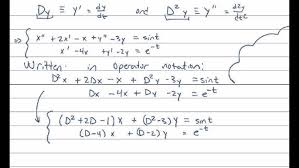 Dy ≡ y' = dy/dt and D²y ≡ y'' = d²y/dt²
⇒ { x'' + 2x' - x + y'' - 3y = sint
x' - 4x + y' - 2y = e⁻ᵗ
Written in operator notation:
D²x + 2Dx - x + D²y - 3y = sint
Dx - 4x + Dy - 2y = e⁻ᵗ
{ (D² + 2D - 1)x + (D² - 3)y = sint
(D - 4)x + (D - 2)y = e⁻ᵗ